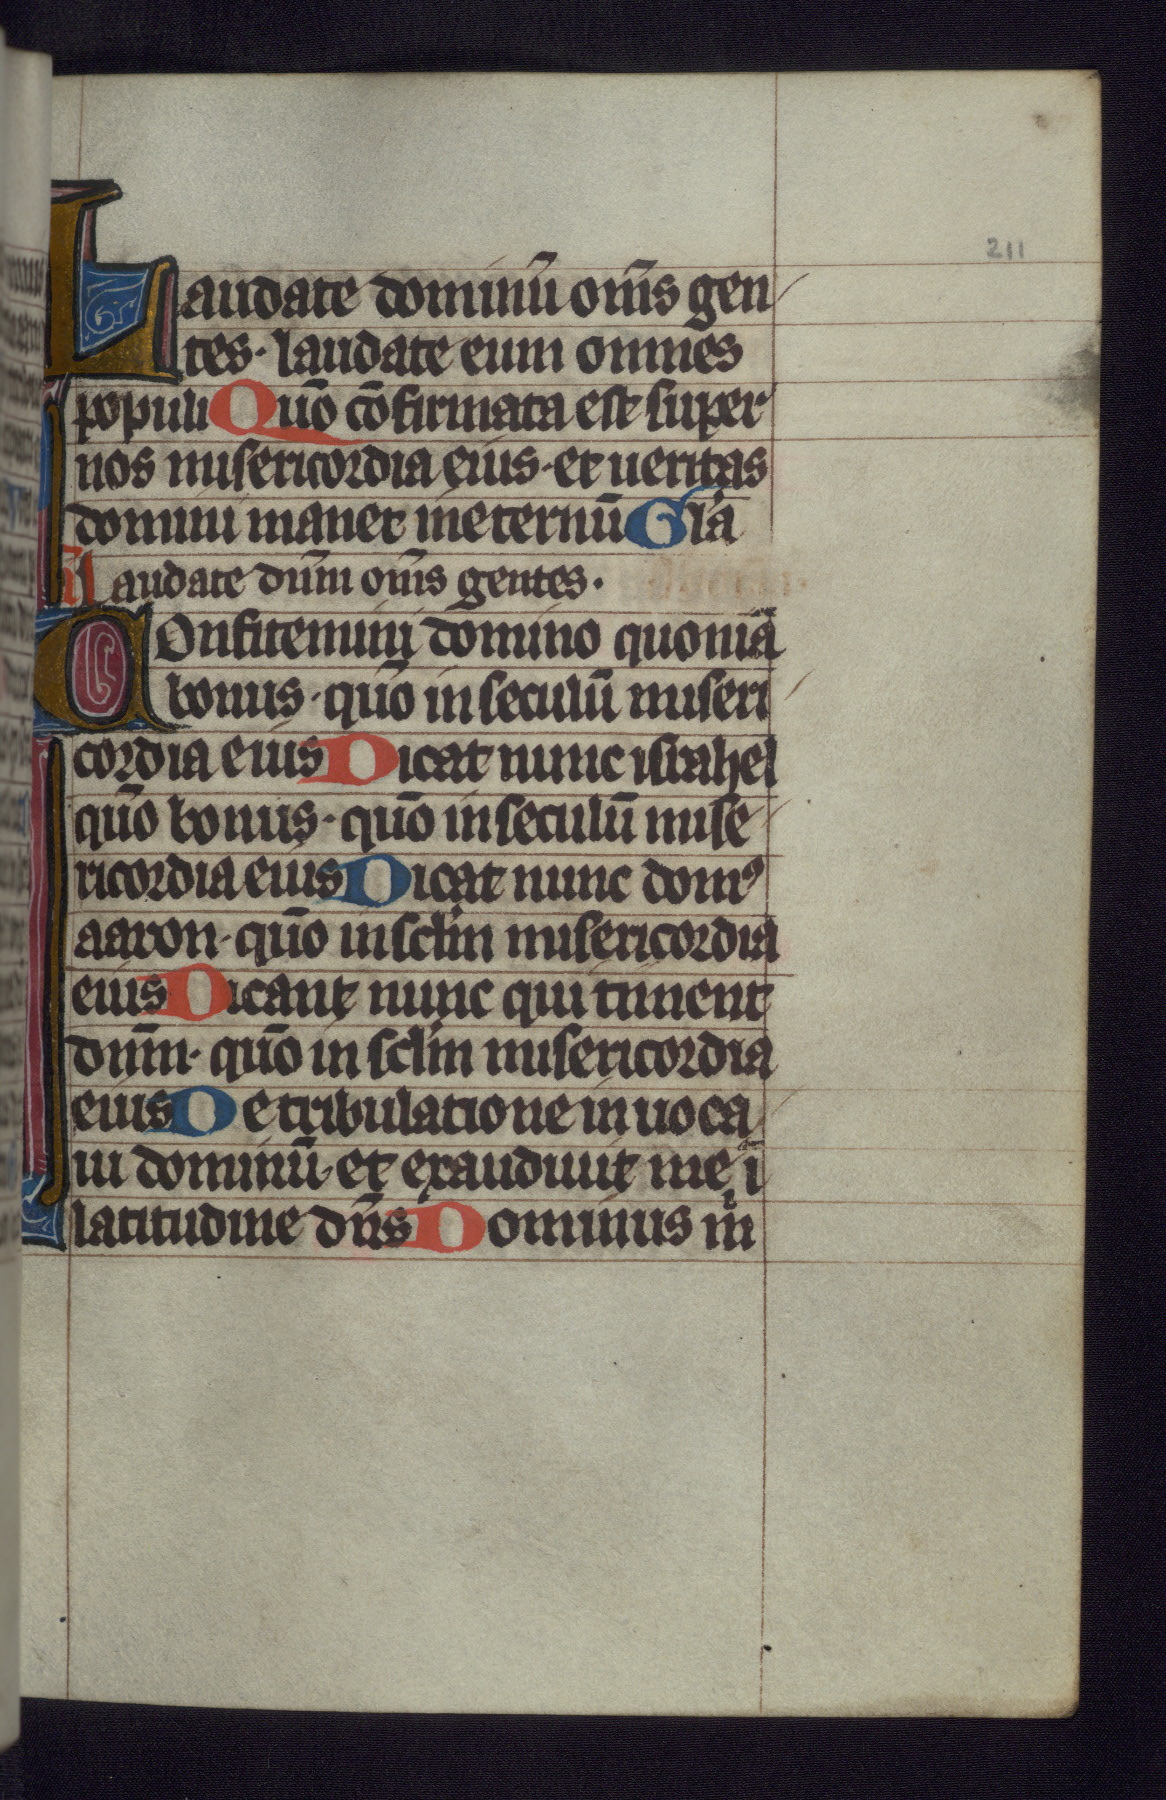 211
Laudate dominū om̄s gen
tes· laudate eum omnes
populi Quō cōfirmata est super
nos misericordia eius· et ueritas
domini manet ineternū Gl̄a
añ laudate dn̄m om̄s gentes·
Confitemini domino quoniā
bonus· quō in seculū miseri
cordia eius Dicat nunc israhel
quō bonus· quō in seculū mise
ricordia eius Dicat nunc domꝰ
aaron· quō in sclm̄ misericordia
eius Dicant nunc qui timent
dn̄m· quō in sclm̄ misericordia
eius De tribulatione inuoca
ui dominū· et exaudiuit me ī
latitudine dn̄s Dominus m̄